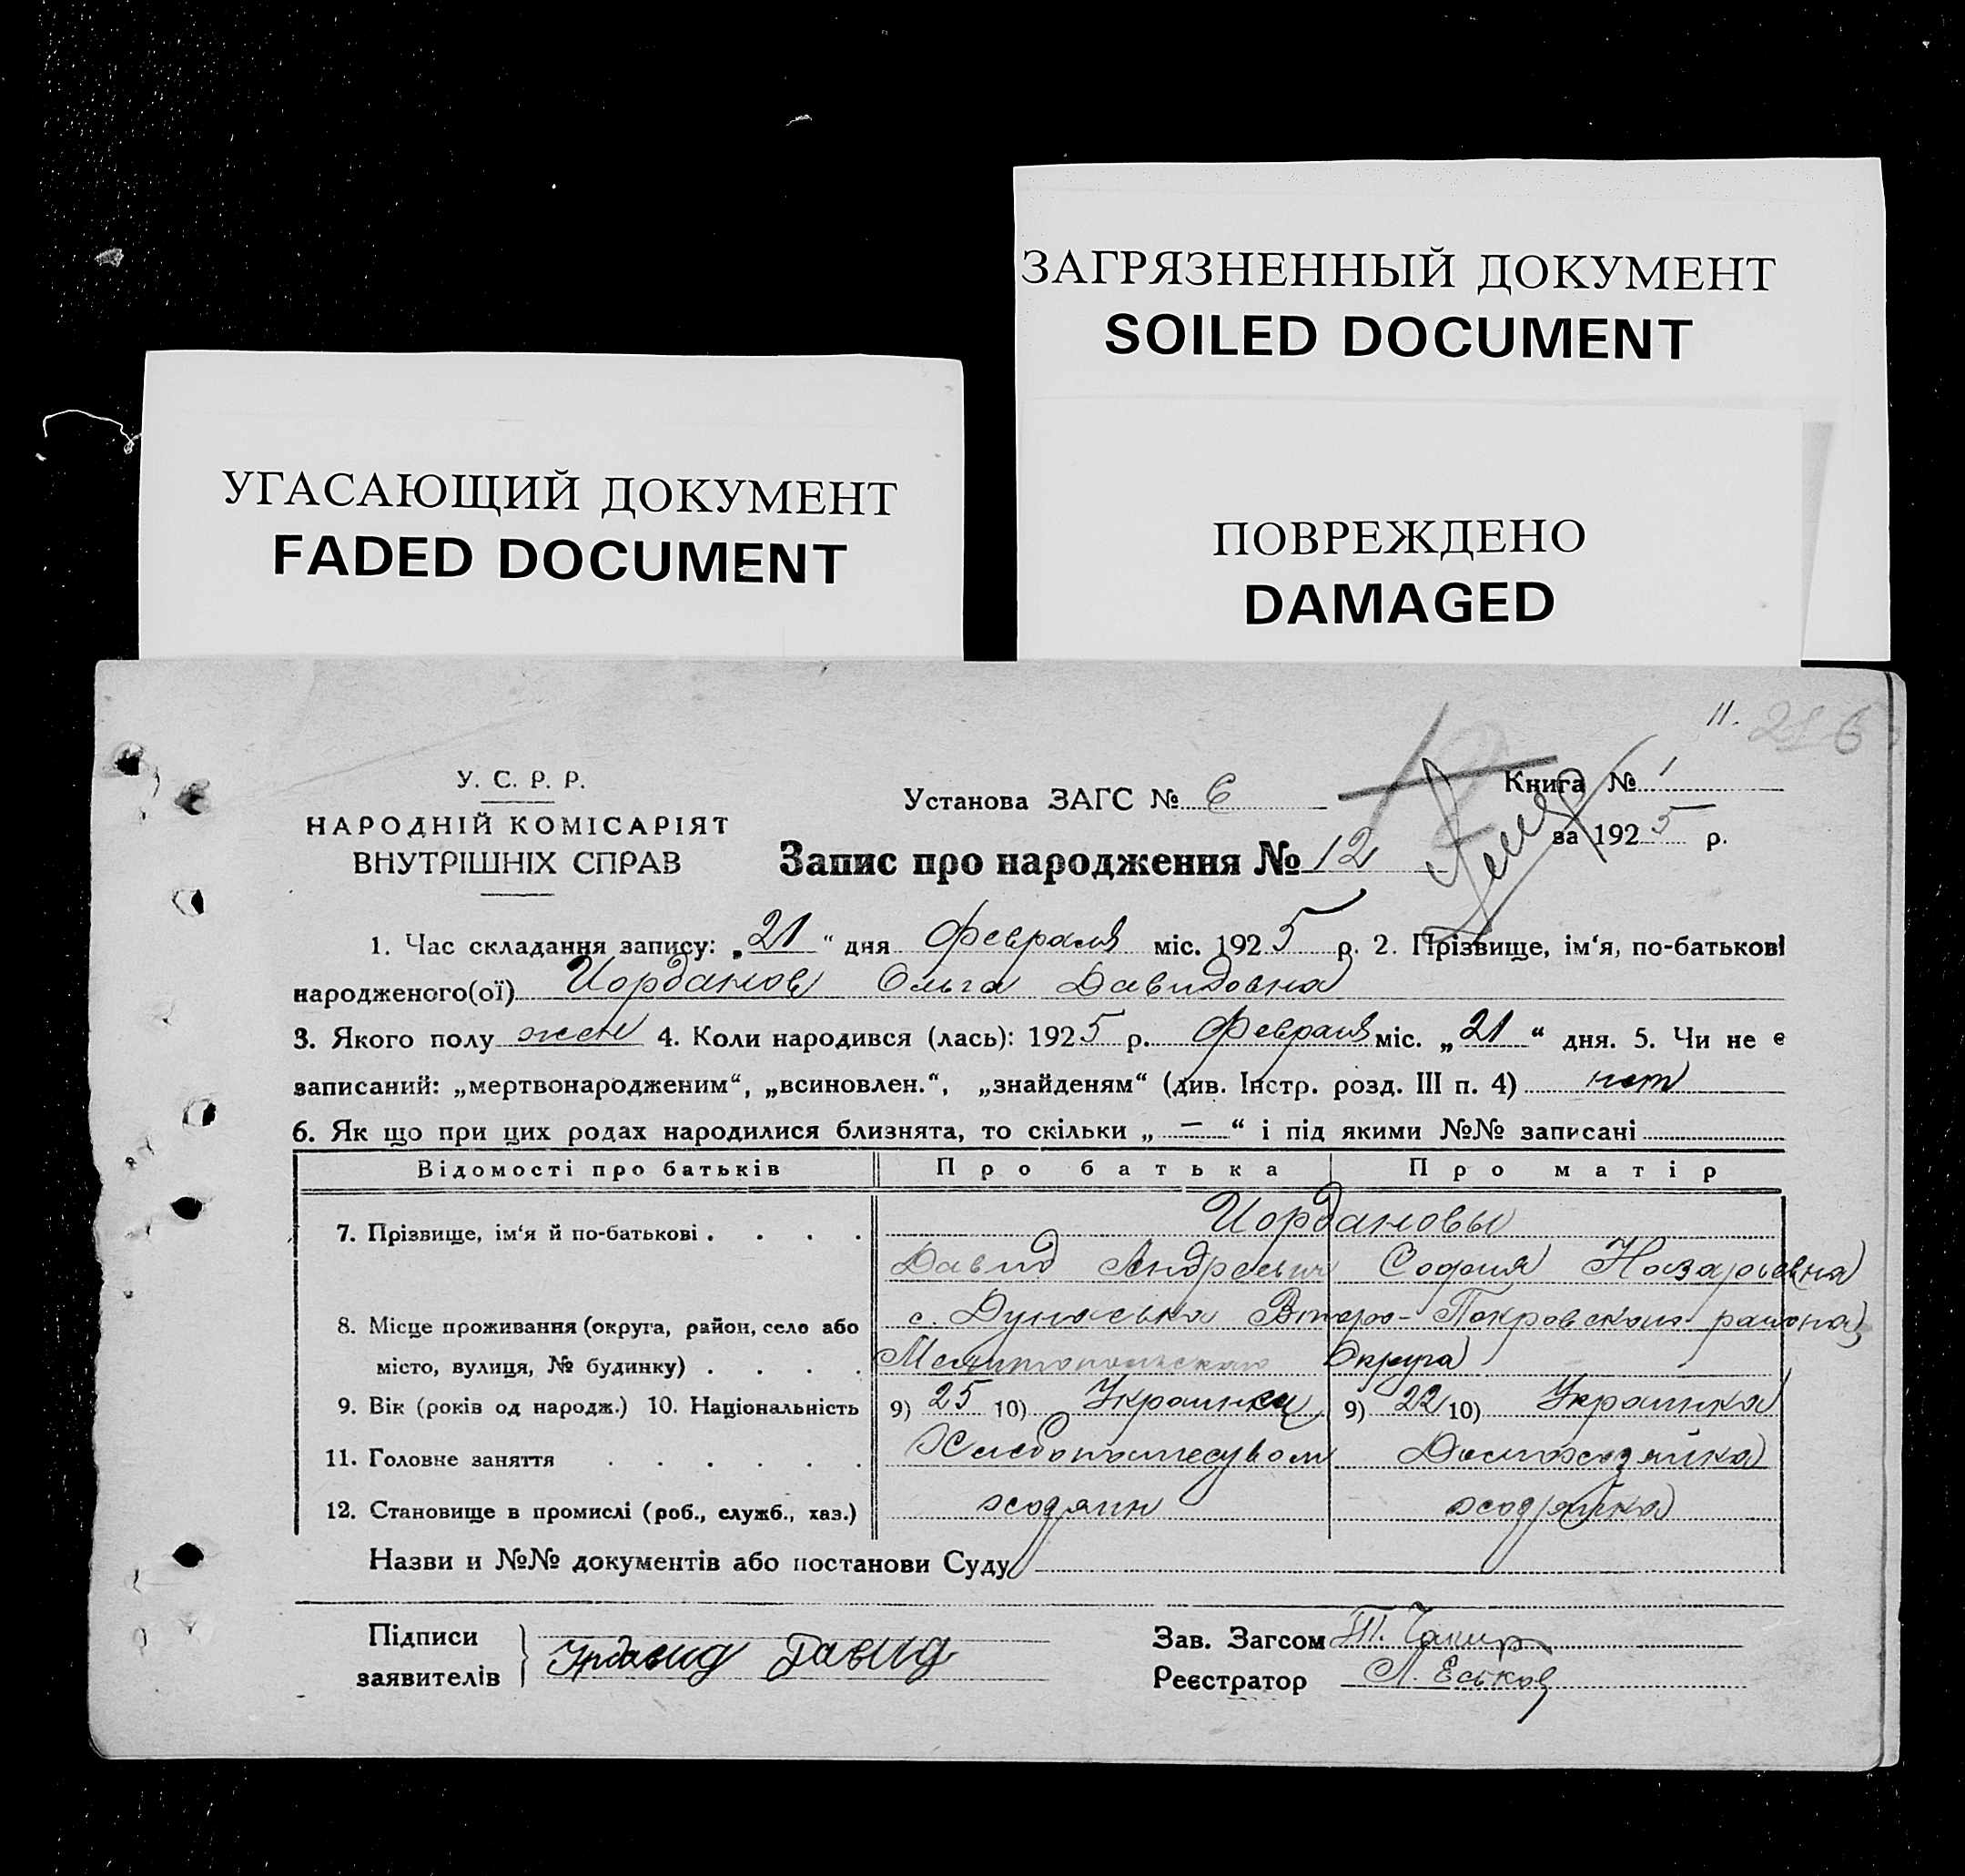 ЗАГРЯЗНЕННЫЙ ДОКУМЕНТ
SOILED DOCUMENT
УГАСАЮЩИЙ ДОКУМЕНТ
FADED DOCUMENT
ПОВРЕЖДЕНО
DAMAGED
11. 216
У. С. Р. Р.
НАРОДНІЙ КОМІСАРІЯТ
ВНУТРІШНІХ СПРАВ
Установа ЗАГС № 6
Книга № 1
за 1925 р.
Запис про народження № 12
1. Час складання запису: „21“ дня Февраля міс. 1925 р. 2. Прізвище, ім‘я, по-батькові
народженого(ої) Иорданов Ольга Давидовна
3. Якого полу жен 4. Коли народився (лась): 1925 р. Февраля міс. „21“ дня. 5. Чи не є
записаний: „мертвонародженим“, „всиновлен.“, „знайденям“ (див. Інстр. розд. III п. 4) нет
6. Як що при цих родах народилися близнята, то скільки „ — “ і під якими №№ записані
Відомості про батьків Про батька Про матір
Иордановы
7. Прізвище, ім‘я й по-батькові . . . .
Давид Андреевич София Назарьевна
8. Місце проживання (округа, район, село або с. Дунаевка Втора-Покровского района,
місто, вулиця, № будинку) . . . . Мелитопольского Округа
9. Вік (років од народж.) 10. Національність 9) 25 10) Украинец 9) 22 10) Украинка
11. Головне заняття . . . . . . Домохозяйка
12. Становище в промислі (роб., служб., хаз.) хозяин хозяйка
Назви и №№ документів або постанови Суду
Підписи
заявителів Давид
Зав. Загсом
Реєстратор Л. Еськов